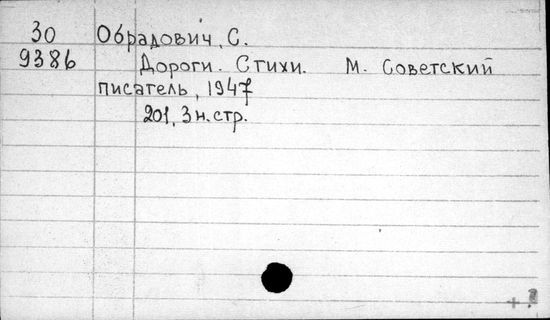 30 Обрадович, С.
9386 Дороги. Стихи. М. Советский
писатель, 1947
201, 3 н. стр.